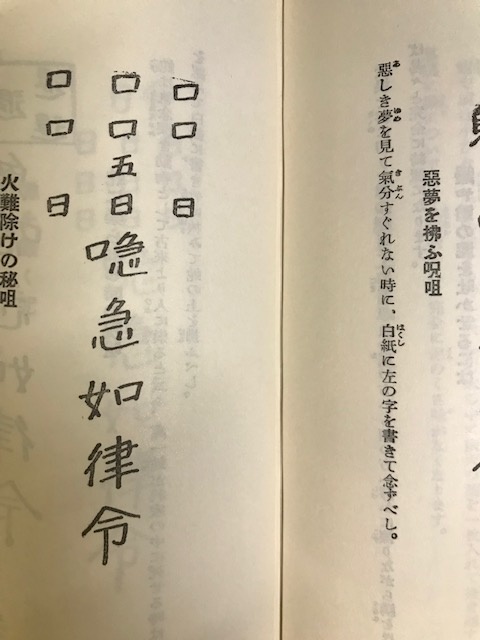 惡夢を拂ふ呪咀
あ ゆめ きぶん はくし
惡しき夢を見て氣分すぐれない時に、白紙に左の字を書きて念ずべし。
口口日
口口五日喼急如律令
口口日
火難除けの秘咀